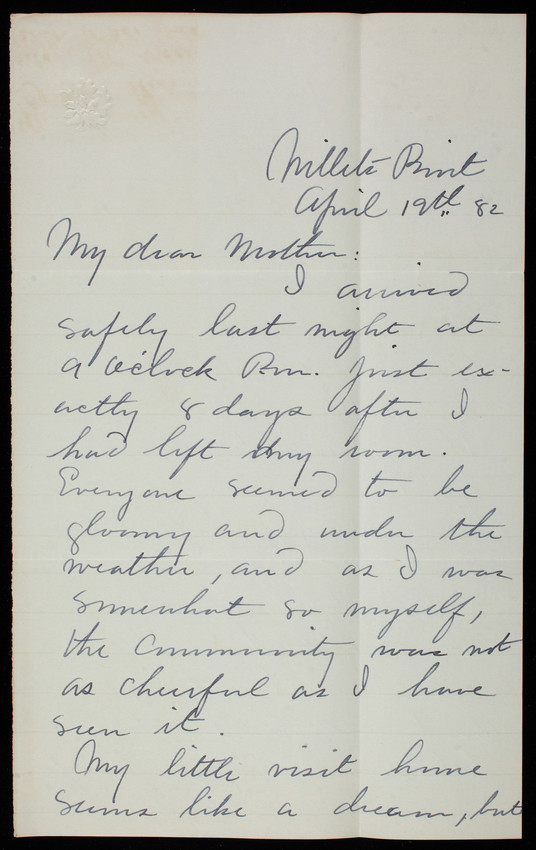 Willets Point
April 19th 82
My dear Mother:
I arrived
safely last night at
9 O'clock P.m. just ex-
actly 8 days after I
had left my room.
Everyone seemed to be
gloomy and under the
weather, and as I was
somewhat so myself,
the Community was not
as cheerful as I have
seen it.
My little visit home
seems like a dream, but